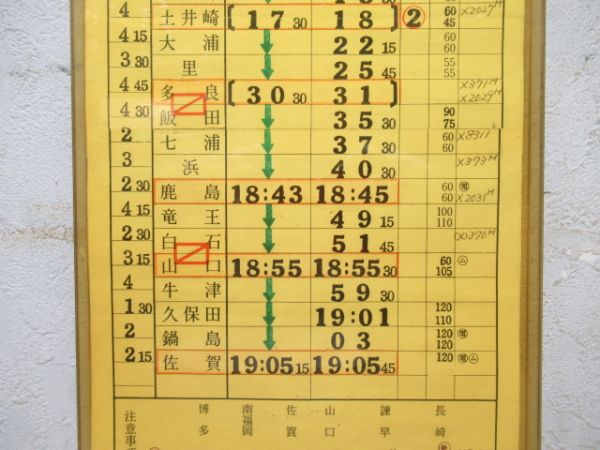 4 土井崎 〔17 30 18 〕 ② 60 45 X2027M
4 15 大浦 22 15
3 30 里 25 45 55 55
4 45 多良 〔30 30 31 〕 X371M X2029M
4 30 飯田 35 30 90 75
2 七浦 37 30 60 60 X8311
3 浜 40 30 X373M
2 30 鹿島 18:43 18:45 60 60 X2031M
4 15 竜王 49 15 100 110
2 30 白石 51 45
3 15 山口 18:55 18:55 30 60 105
4 牛津 59 30
1 30 久保田 19:01 120 110
2 鍋島 03 120 120
2 15 佐賀 19:05 15 19:05 45 120
注意事
博多
南福岡
佐賀
山口
諫早
長崎